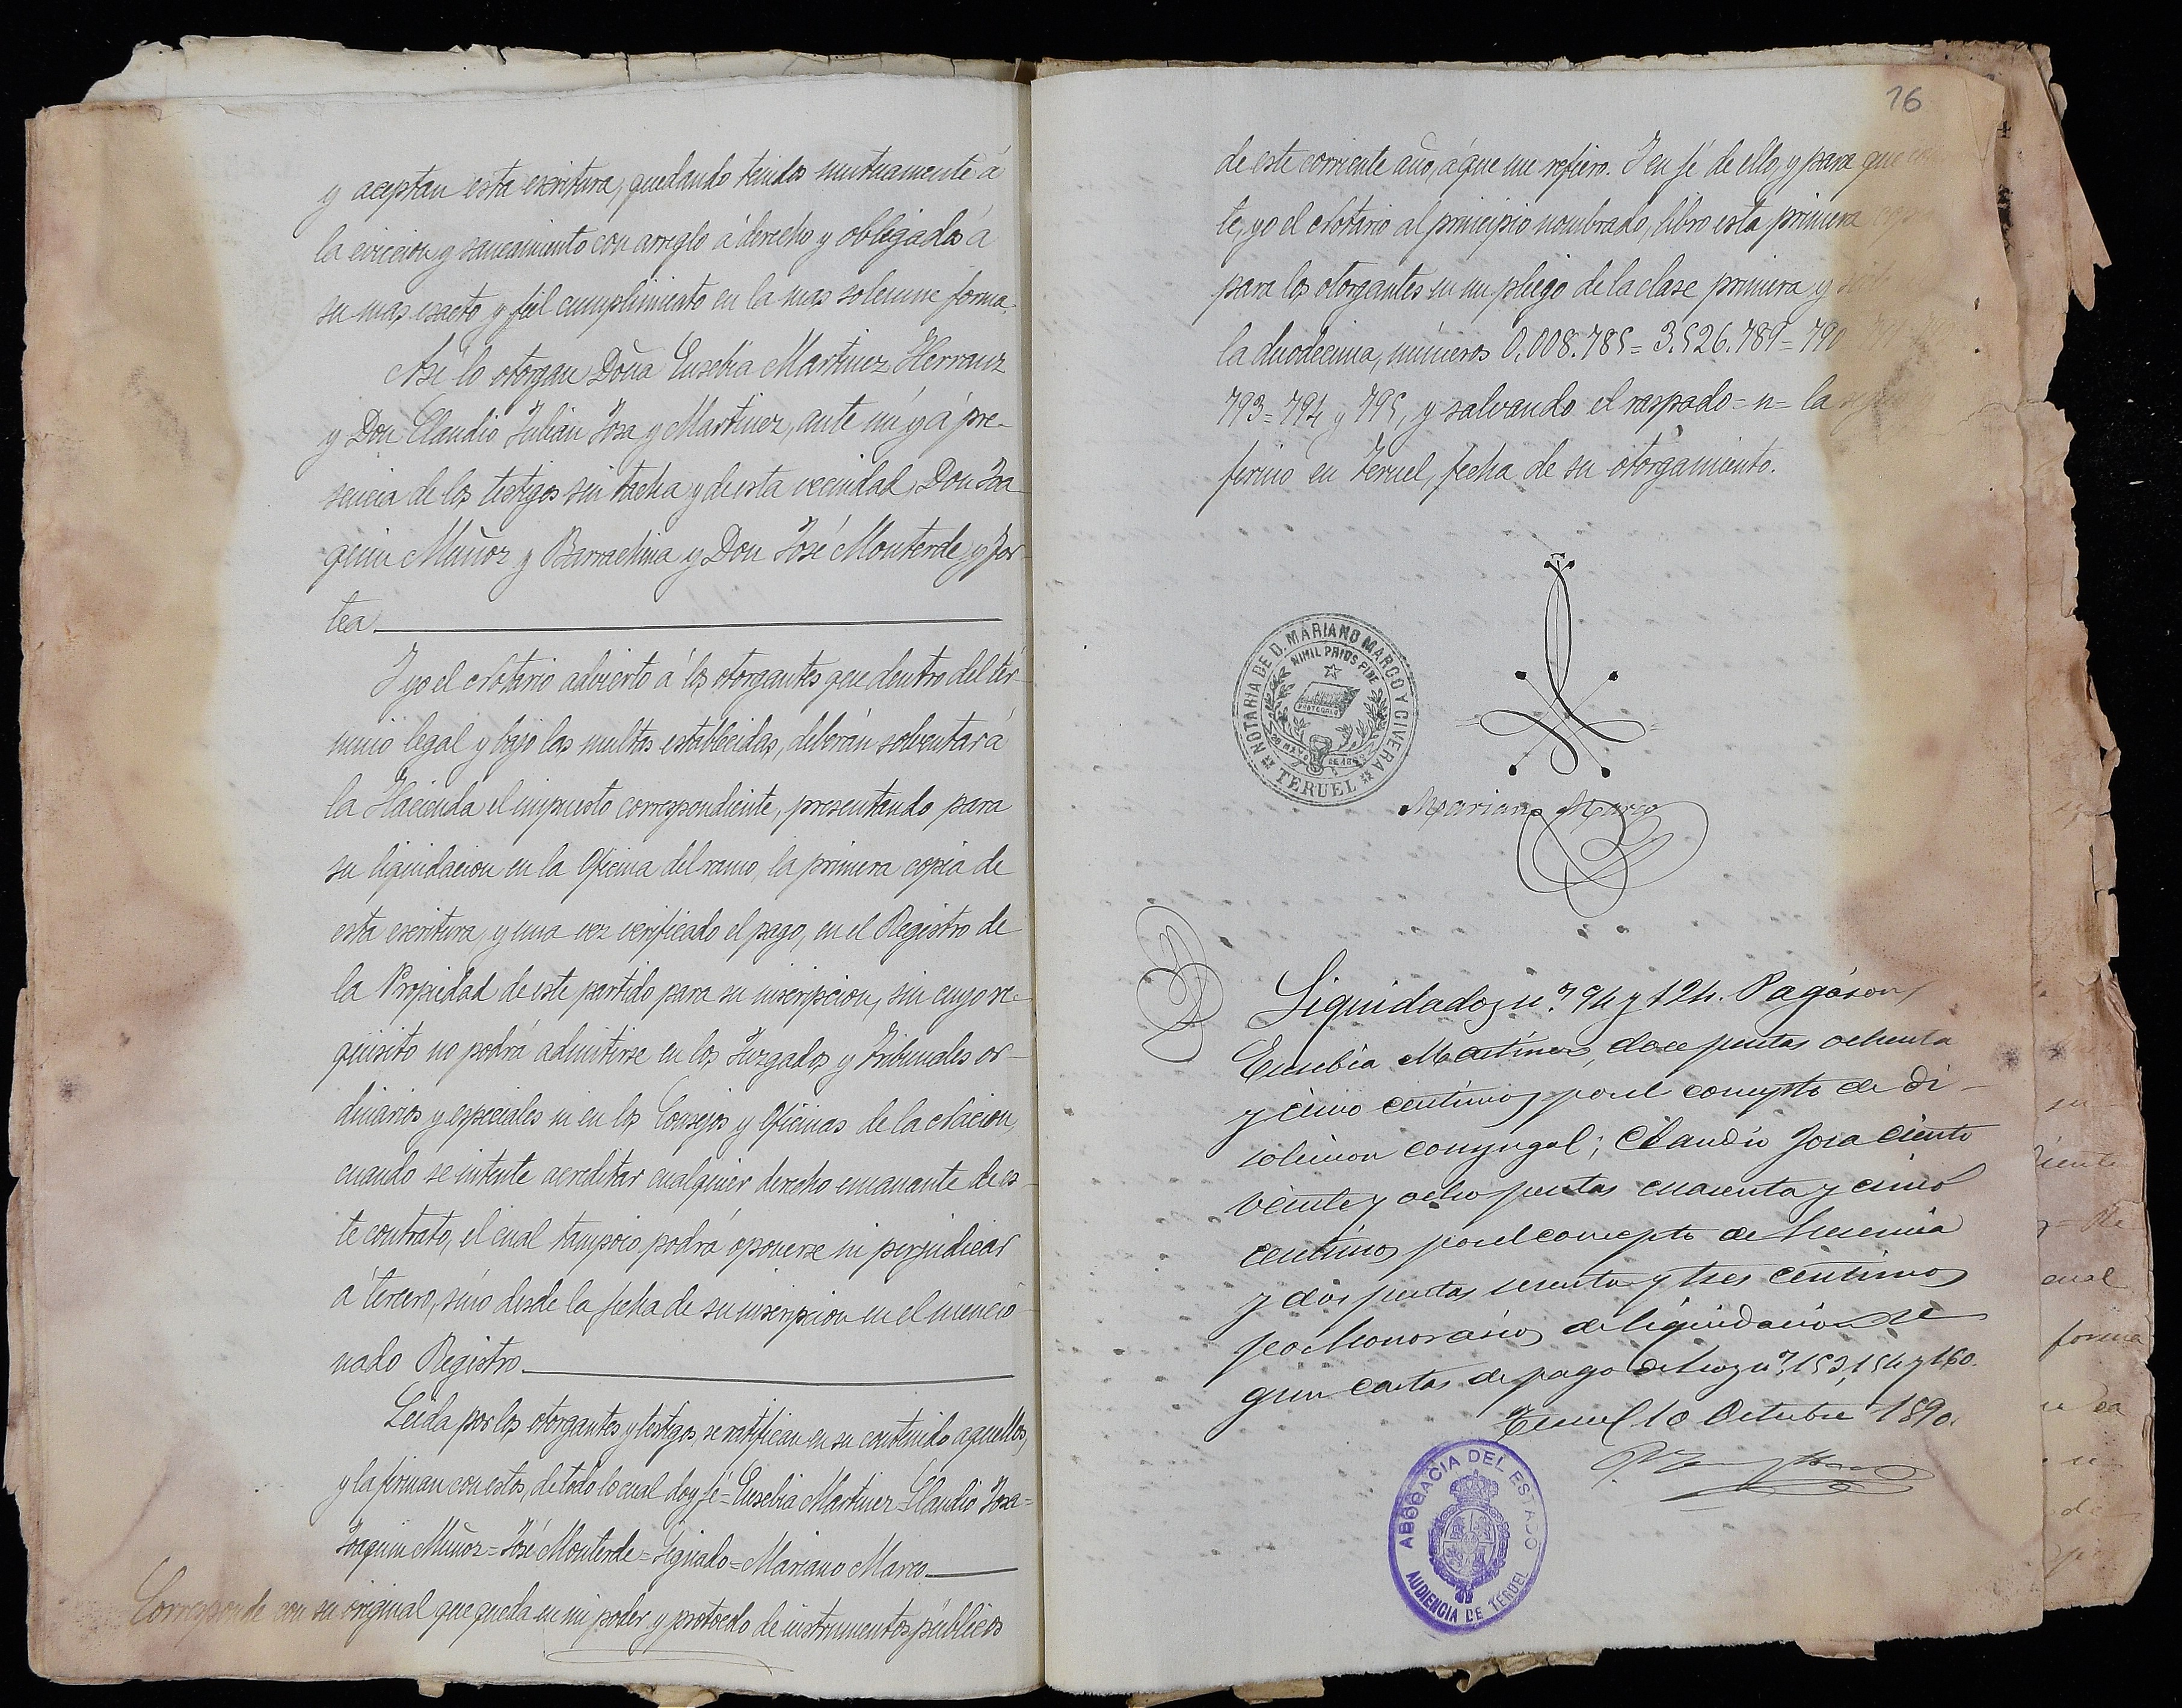 y aceptan esta escritura, quedando tenidos mutuamente á
la eviccion y saneamiento con arreglo á derecho y obligados á
su mas exacto y fiel cumplimiento en la mas solemne forma.
Asi lo otorgan Doña Eusebia Martinez Herranz
y Don Claudio Julián Josa y Martinez, ante mí y á pre-
sencia de los testigos sin tacha y de esta vecindad, Don Joa-
quin Muñoz y Barrachina y Don José Monterde y For-
tea
Y yo el Notario advierto á los otorgantes que dentro del tér-
mino legal y bajo las multas establecidas, deberán solventar á
la Hacienda el impuesto correspondiente, presentando para
su liquidacion en la Oficina del ramo, la primera copia de
esta escritura, y una vez verificado el pago, en el Registro de
la Propiedad de este partido para su inscripcion, sin cuyo re-
quisito no podrá admitirse en los Juzgados y Tribunales or-
dinarios y especiales ni en los Consejos y Oficinas de la Nacion,
cuando se intente acreditar cualquier derecho emanante de es-
te contrato, el cual tampoco podrá oponerse ni perjudicar
á tercero, sino desde la fecha de su inscripcion en el mencio-
nado Registro.
Leida por los otorgantes y testigos, se ratifican en su contenido aquellos,
y la firman con estos, de todo lo cual doy fé = Eusebia Martinez = Claudio Josa =
Joaquin Muñoz = José Monterde = Signado = Mariano Marco.
Corresponde con su original que queda en mi poder y protocolo de instrumentos públicos
16
de este corriente año, á que me refiero. Y en fé de ello, y para que
te, yo el Notario al principio nombrado, libro esta primera copia
para los otorgantes en un pliego de la clase primera y
la duodecima, números 0.008.785 = 3.526.789 = 790
793 = 794 y 795, y salvando el raspado = n = la
firmo en Teruel, fecha de su otorgamiento.
NOTARIA DE D. MARIANO MARCO Y CIVERA
NIHIL PRIUS FIDE
TERUEL
Mariano Marco
Liquidados nos. 94 y 124. Pagaron,
Eusebia Martinez, doce pesetas ochenta
y cinco centimos por el concepto de di-
solucion conyugal; Claudio Josa ciento
veinte y ocho pesetas cuarenta y cinco
centimos por el concepto de herencia
y dos pesetas sesenta y tres centimos
por honorarios de liquidacion se
gun cartas de pago de hoy nos. 153, 154 y 160.
Teruel 10 Octubre 1890.
ABOGACIA DEL ESTADO
AUDIENCIA DE TERUEL